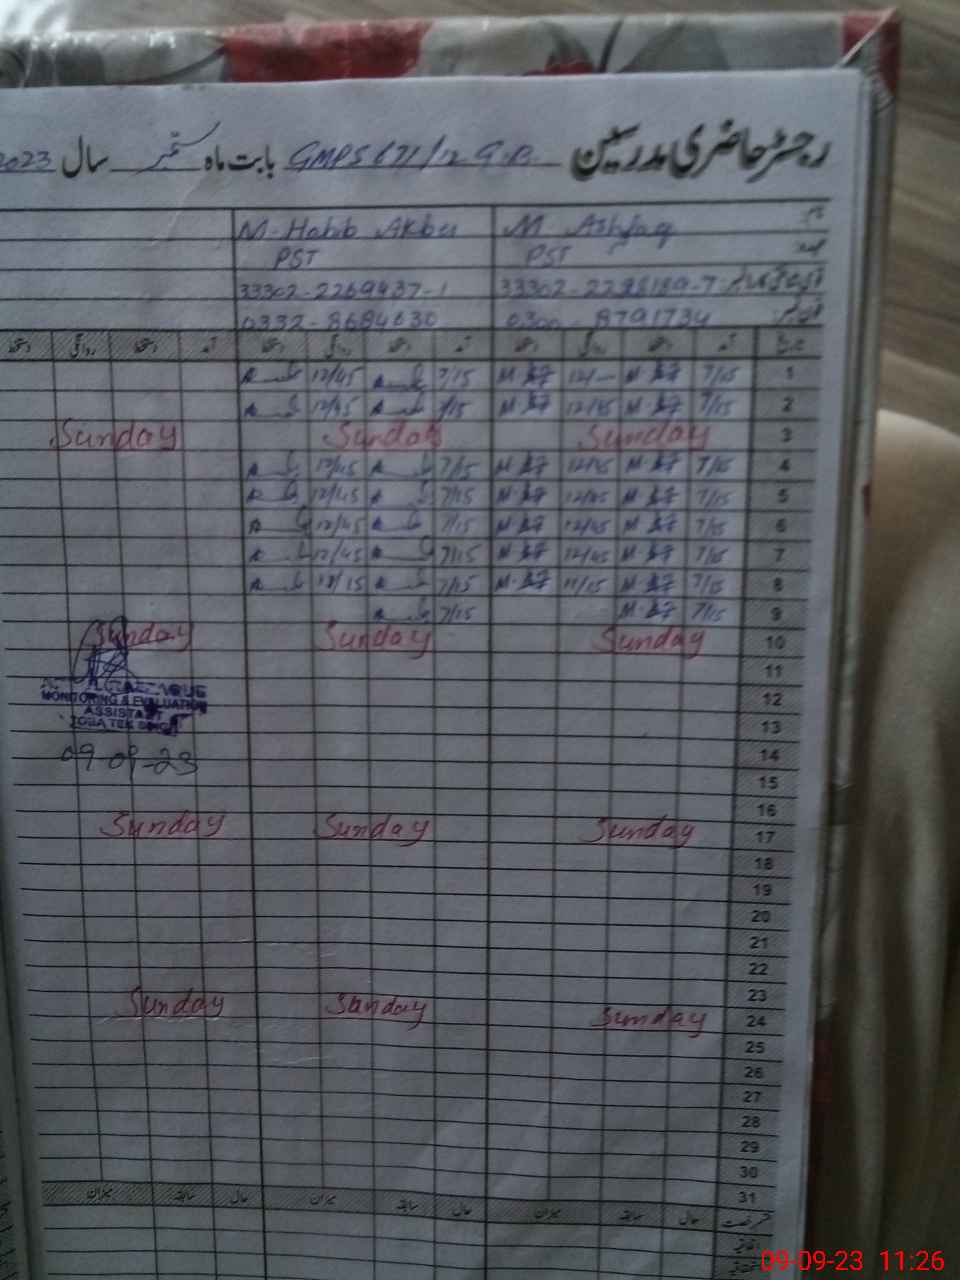 رجسٹر حاضری مدرسین GMPS 671/12 G.B. بابت ماہ ستمبر سال 2023
نام M Ashfaq M. Habib Akbar
عہدہ PST PST
33302-2298189-7 33302-2269437-1
فون نمبر 0300-8791734 0332-8684630
تاریخ آمد دستخط روانگی دستخط آمد دستخط روانگی دستخط آمد دستخط روانگی دستخط
1 7/15 12/- 7/15 12/45
2 7/15 12/45 7/15 12/45
3 Sunday Sunday Sunday
4 7/15 12/45 7/15 12/45
5 7/15 12/45 7/15 12/45
6 7/15 12/45 7/15 12/45
7 7/15 12/45 7/15 12/45
8 7/15 11/15 7/15
9 7/15 7/15
10 Sunday Sunday Sunday
11
12
MONITORING & EVALUATION
ASSISTANT
13
TOBA TEK SINGH
14
09-09-23
15
16
17 Sunday Sunday Sunday
18
19
20
21
22
23
24 Sunday Sunday Sunday
25
26
27
28
29
30
31
قسم رخصت حال سابقہ میزان حال سابقہ میزان حال سابقہ میزان
اتفاقیہ
09-09-23 11:26